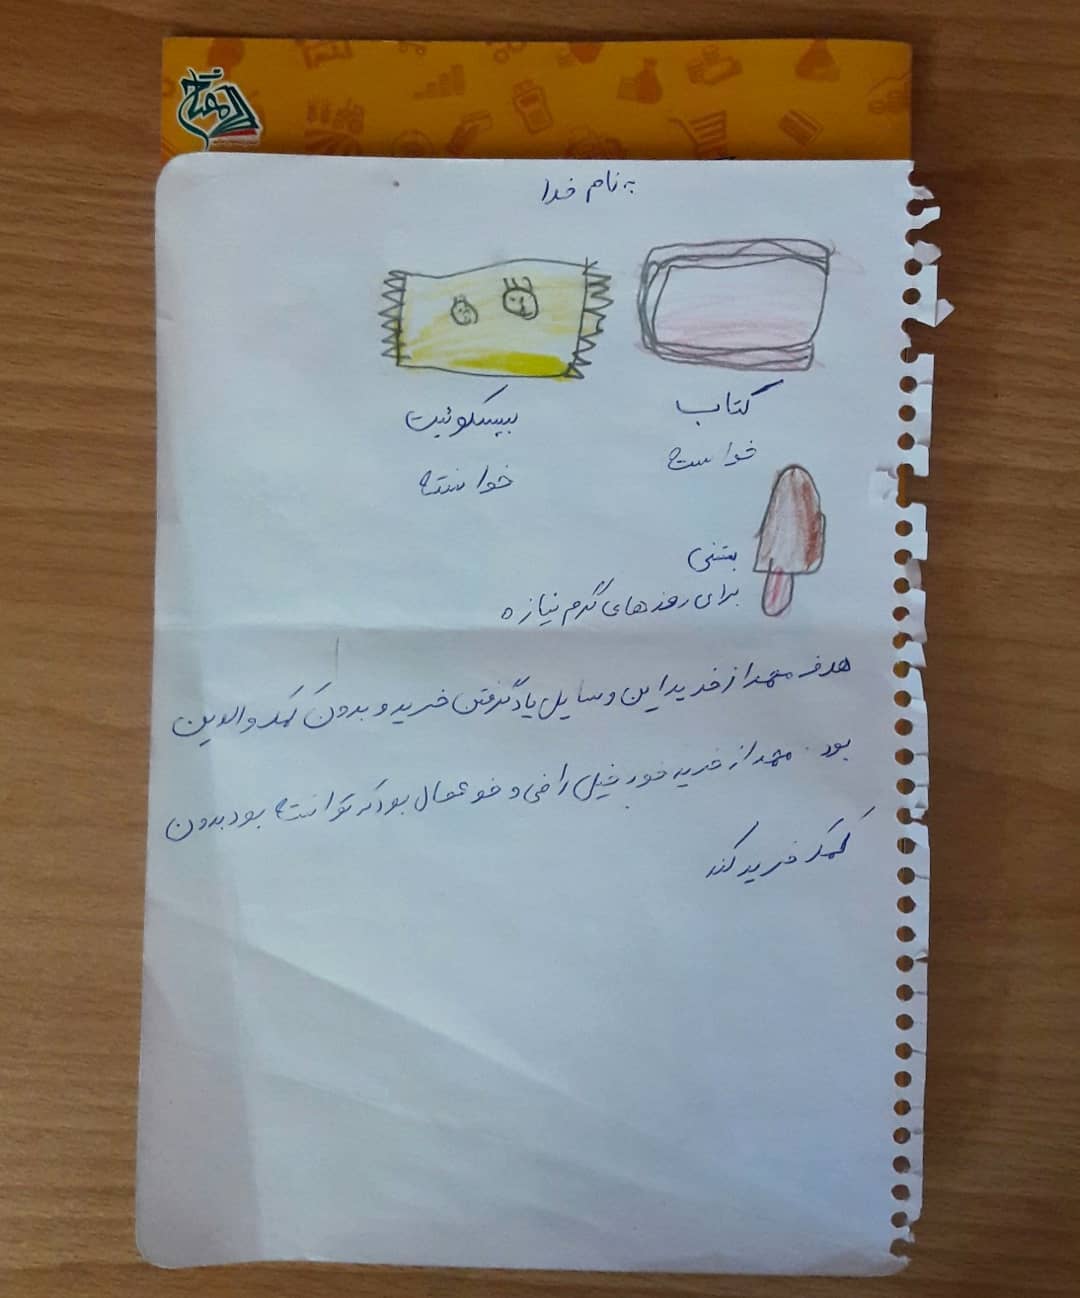 به نام خدا
کتاب
بیسکوئیت
خواسته
خواسته
بستنی
برای روزهای گرم نیازه
هدف محمد از خرید این وسایل یادگرفتن خرید و بدون کمک والدین
بود. محمد از خرید خود خیلی راضی و خوشحال بود که توانسته بود بدون
کمک خرید کند